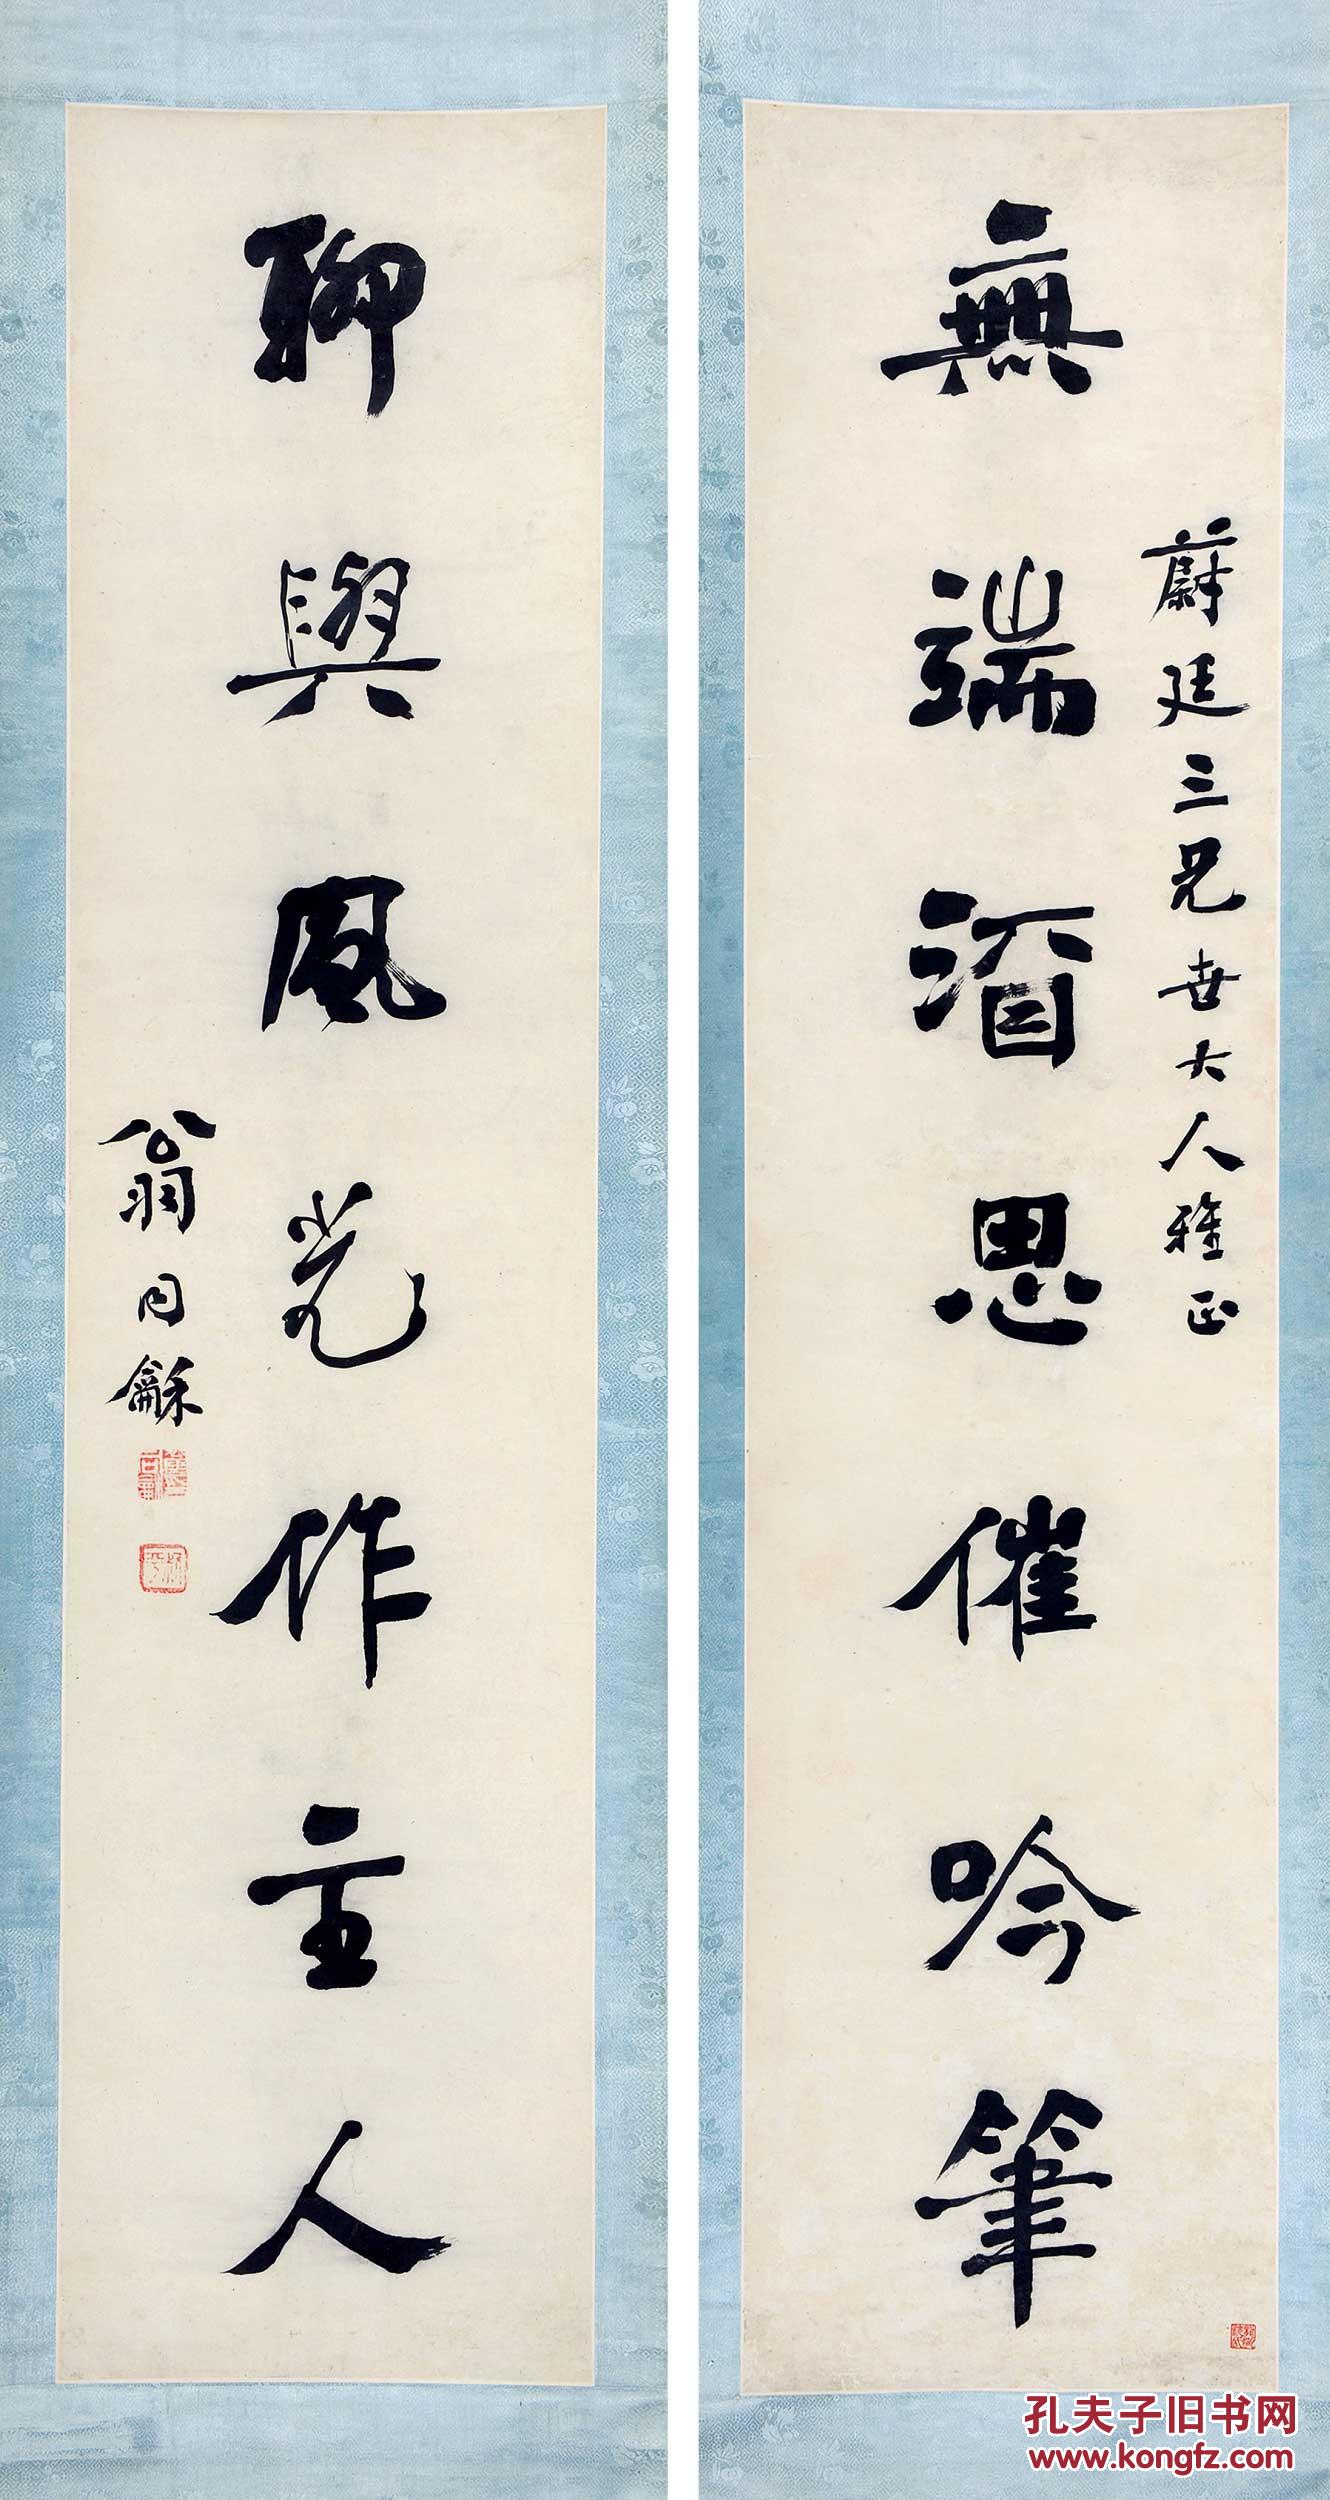 無端酒思催吟筆
蔚廷三兄世大人雅正
聊與風光作主人
翁同龢
孔夫子旧书网
www.kongfz.com